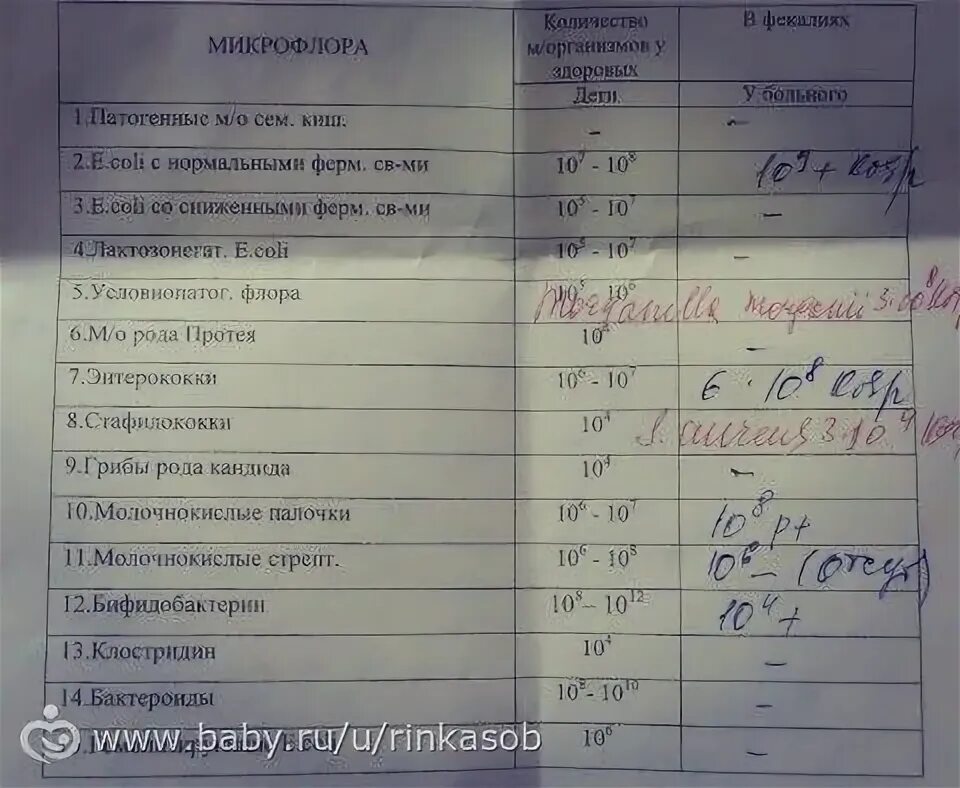 МИКРОФЛОРА Количество м/организмов у здоровых В фекалиях
Дети У больного
1.Патогенные м/о сем. киш. – –
2.E.coli с нормальными ферм. св-ми 10⁷ - 10⁸ 10⁹ +
3.E.coli со сниженными ферм. св-ми - 10⁷ –
4.Лактозонегат. E.coli 10⁵ - 10⁷ –
5.Условнопатог. флора 10⁵ 10⁶ 3·10⁸
6.М/о рода Протея –
7.Энтерококки 10⁶ - 10⁷ 6 · 10⁸
8.Стафилококки 10⁴ S. aureus 3·10⁴
9.Грибы рода кандида 10⁴ –
10.Молочнокислые палочки 10⁶ - 10⁷ 10⁸ р+
11.Молочнокислые стрепт. 10⁶ - 10⁸ 10⁶ – (отсут)
12.Бифидобактерии 10⁸ – 10¹² 10⁴ +
13.Клостридии 10⁴ –
14.Бактероиды 10⁸ - 10¹⁰ –
10⁶ –
www.baby.ru/u/rinkasob